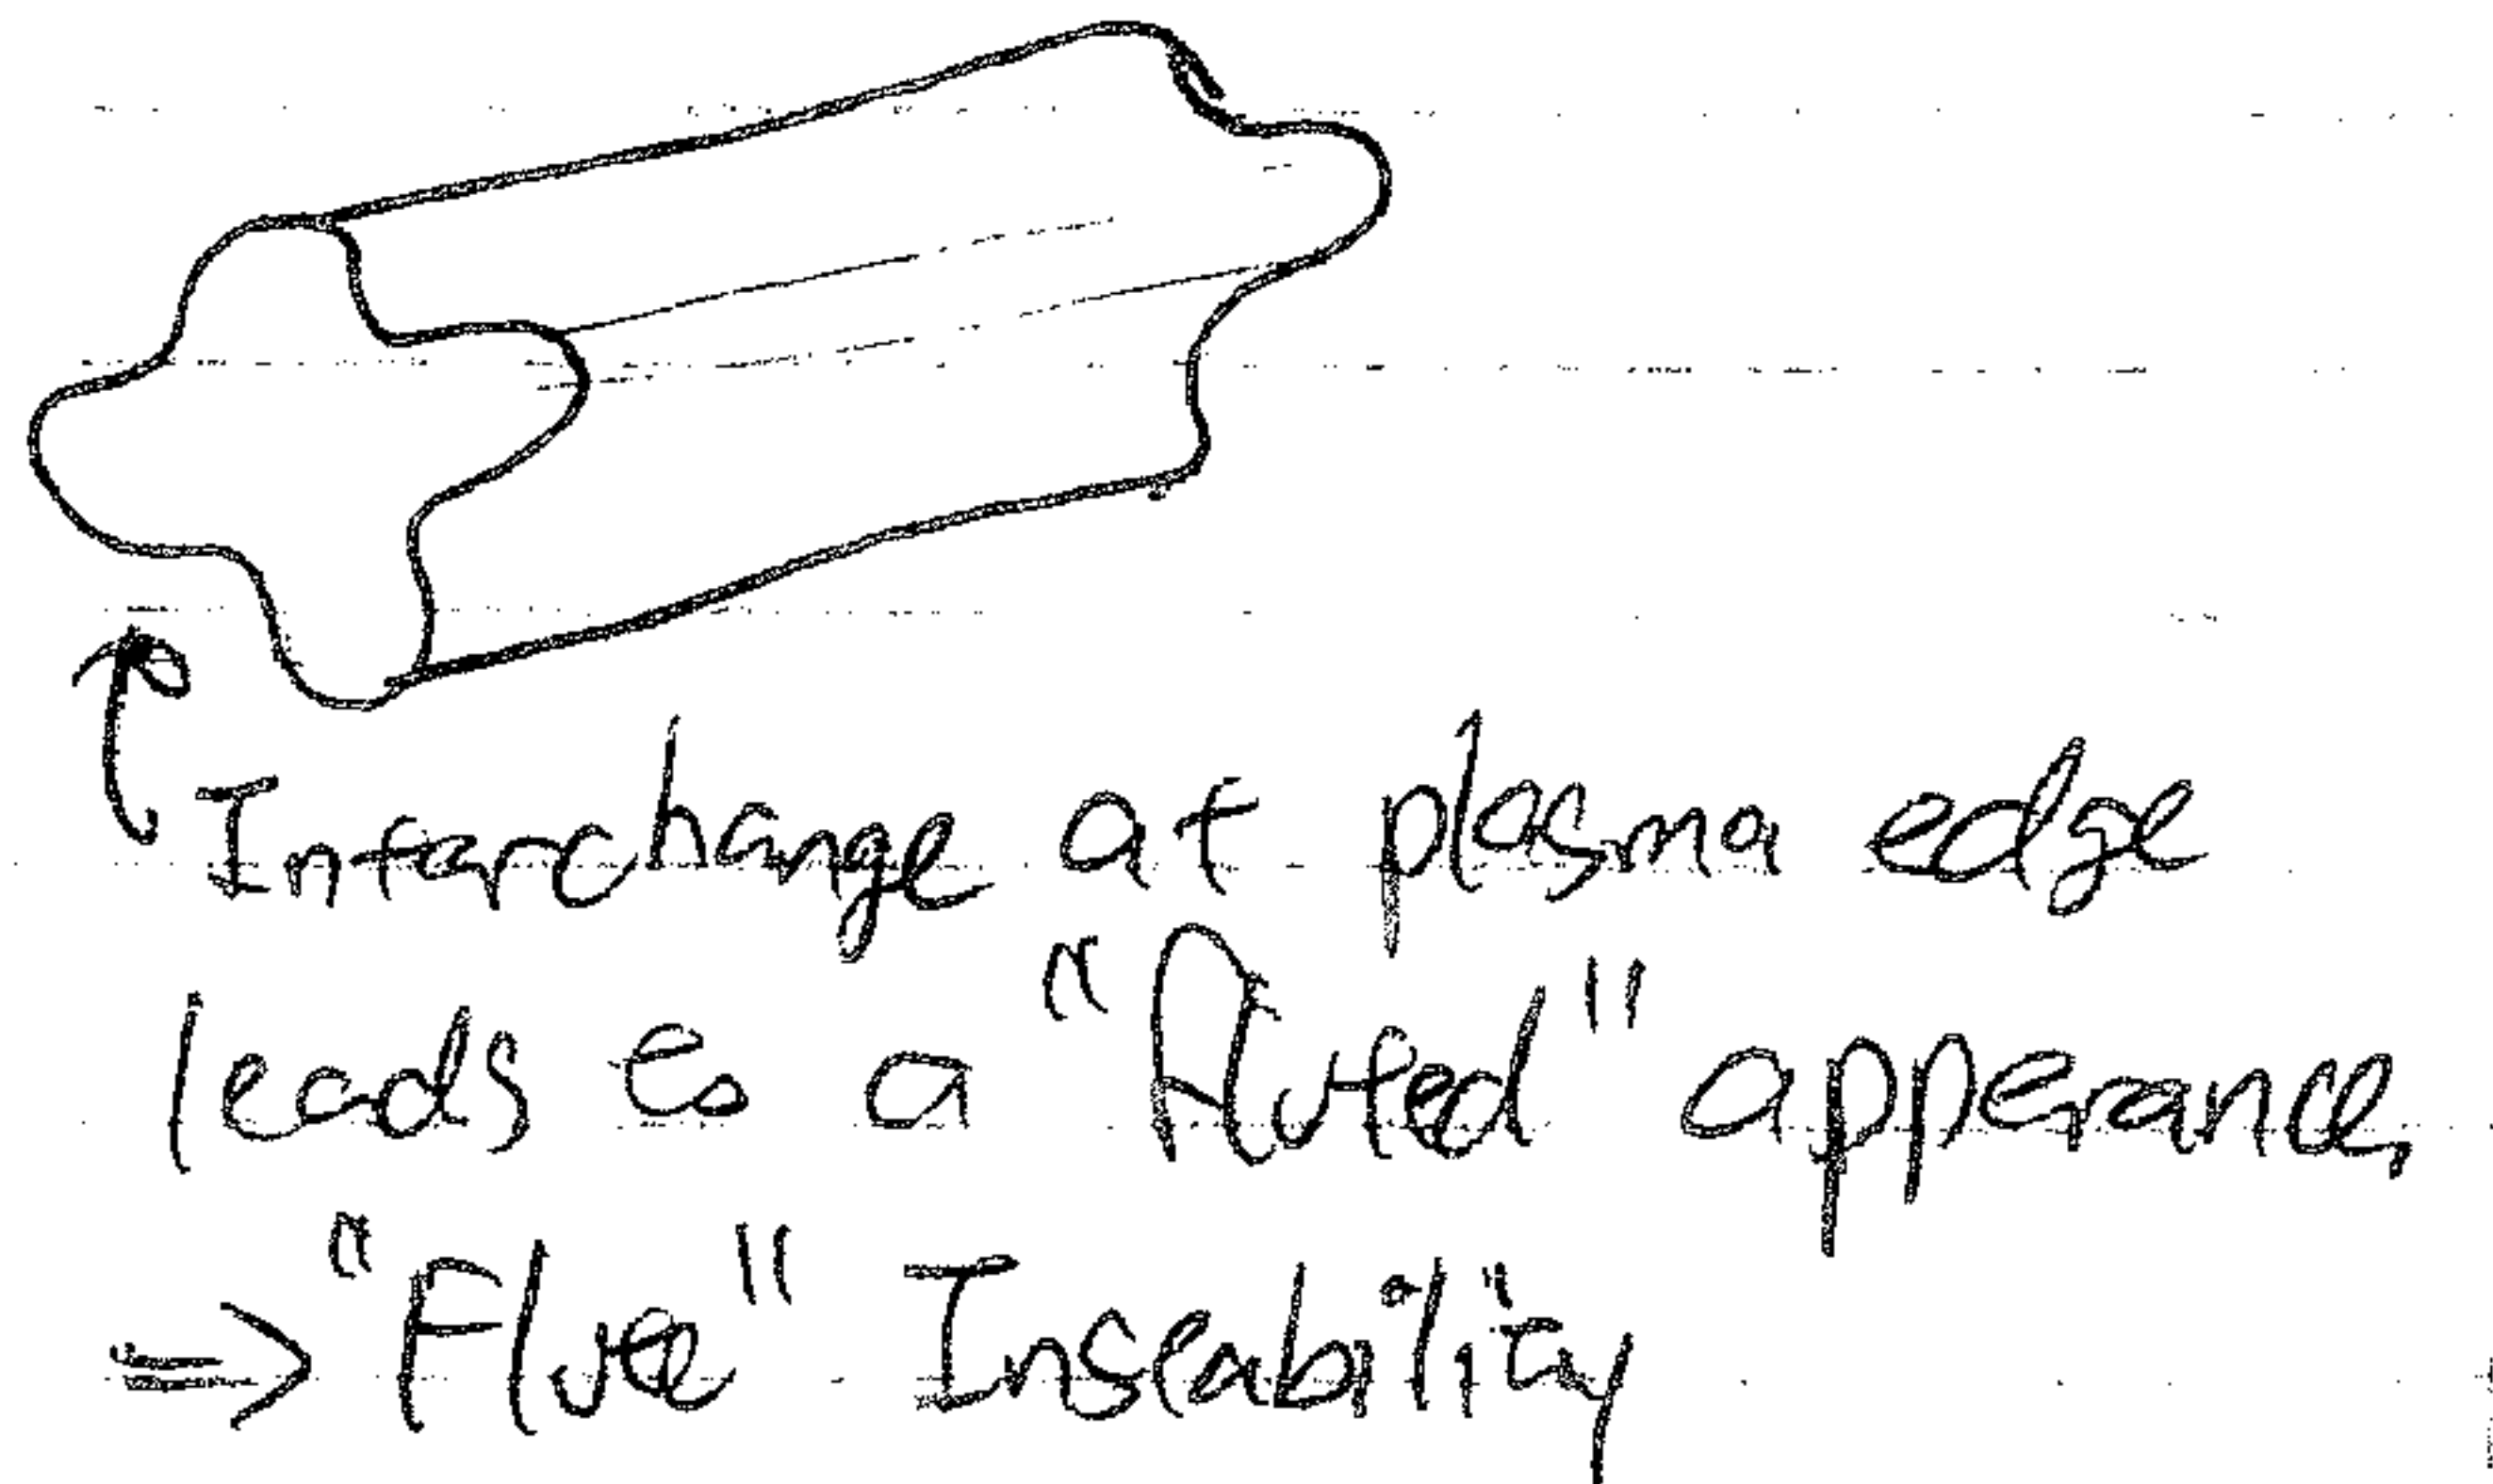 Interchange at plasma edge
leads to a "fluted" apperance,
⇒ "Flute" Instability